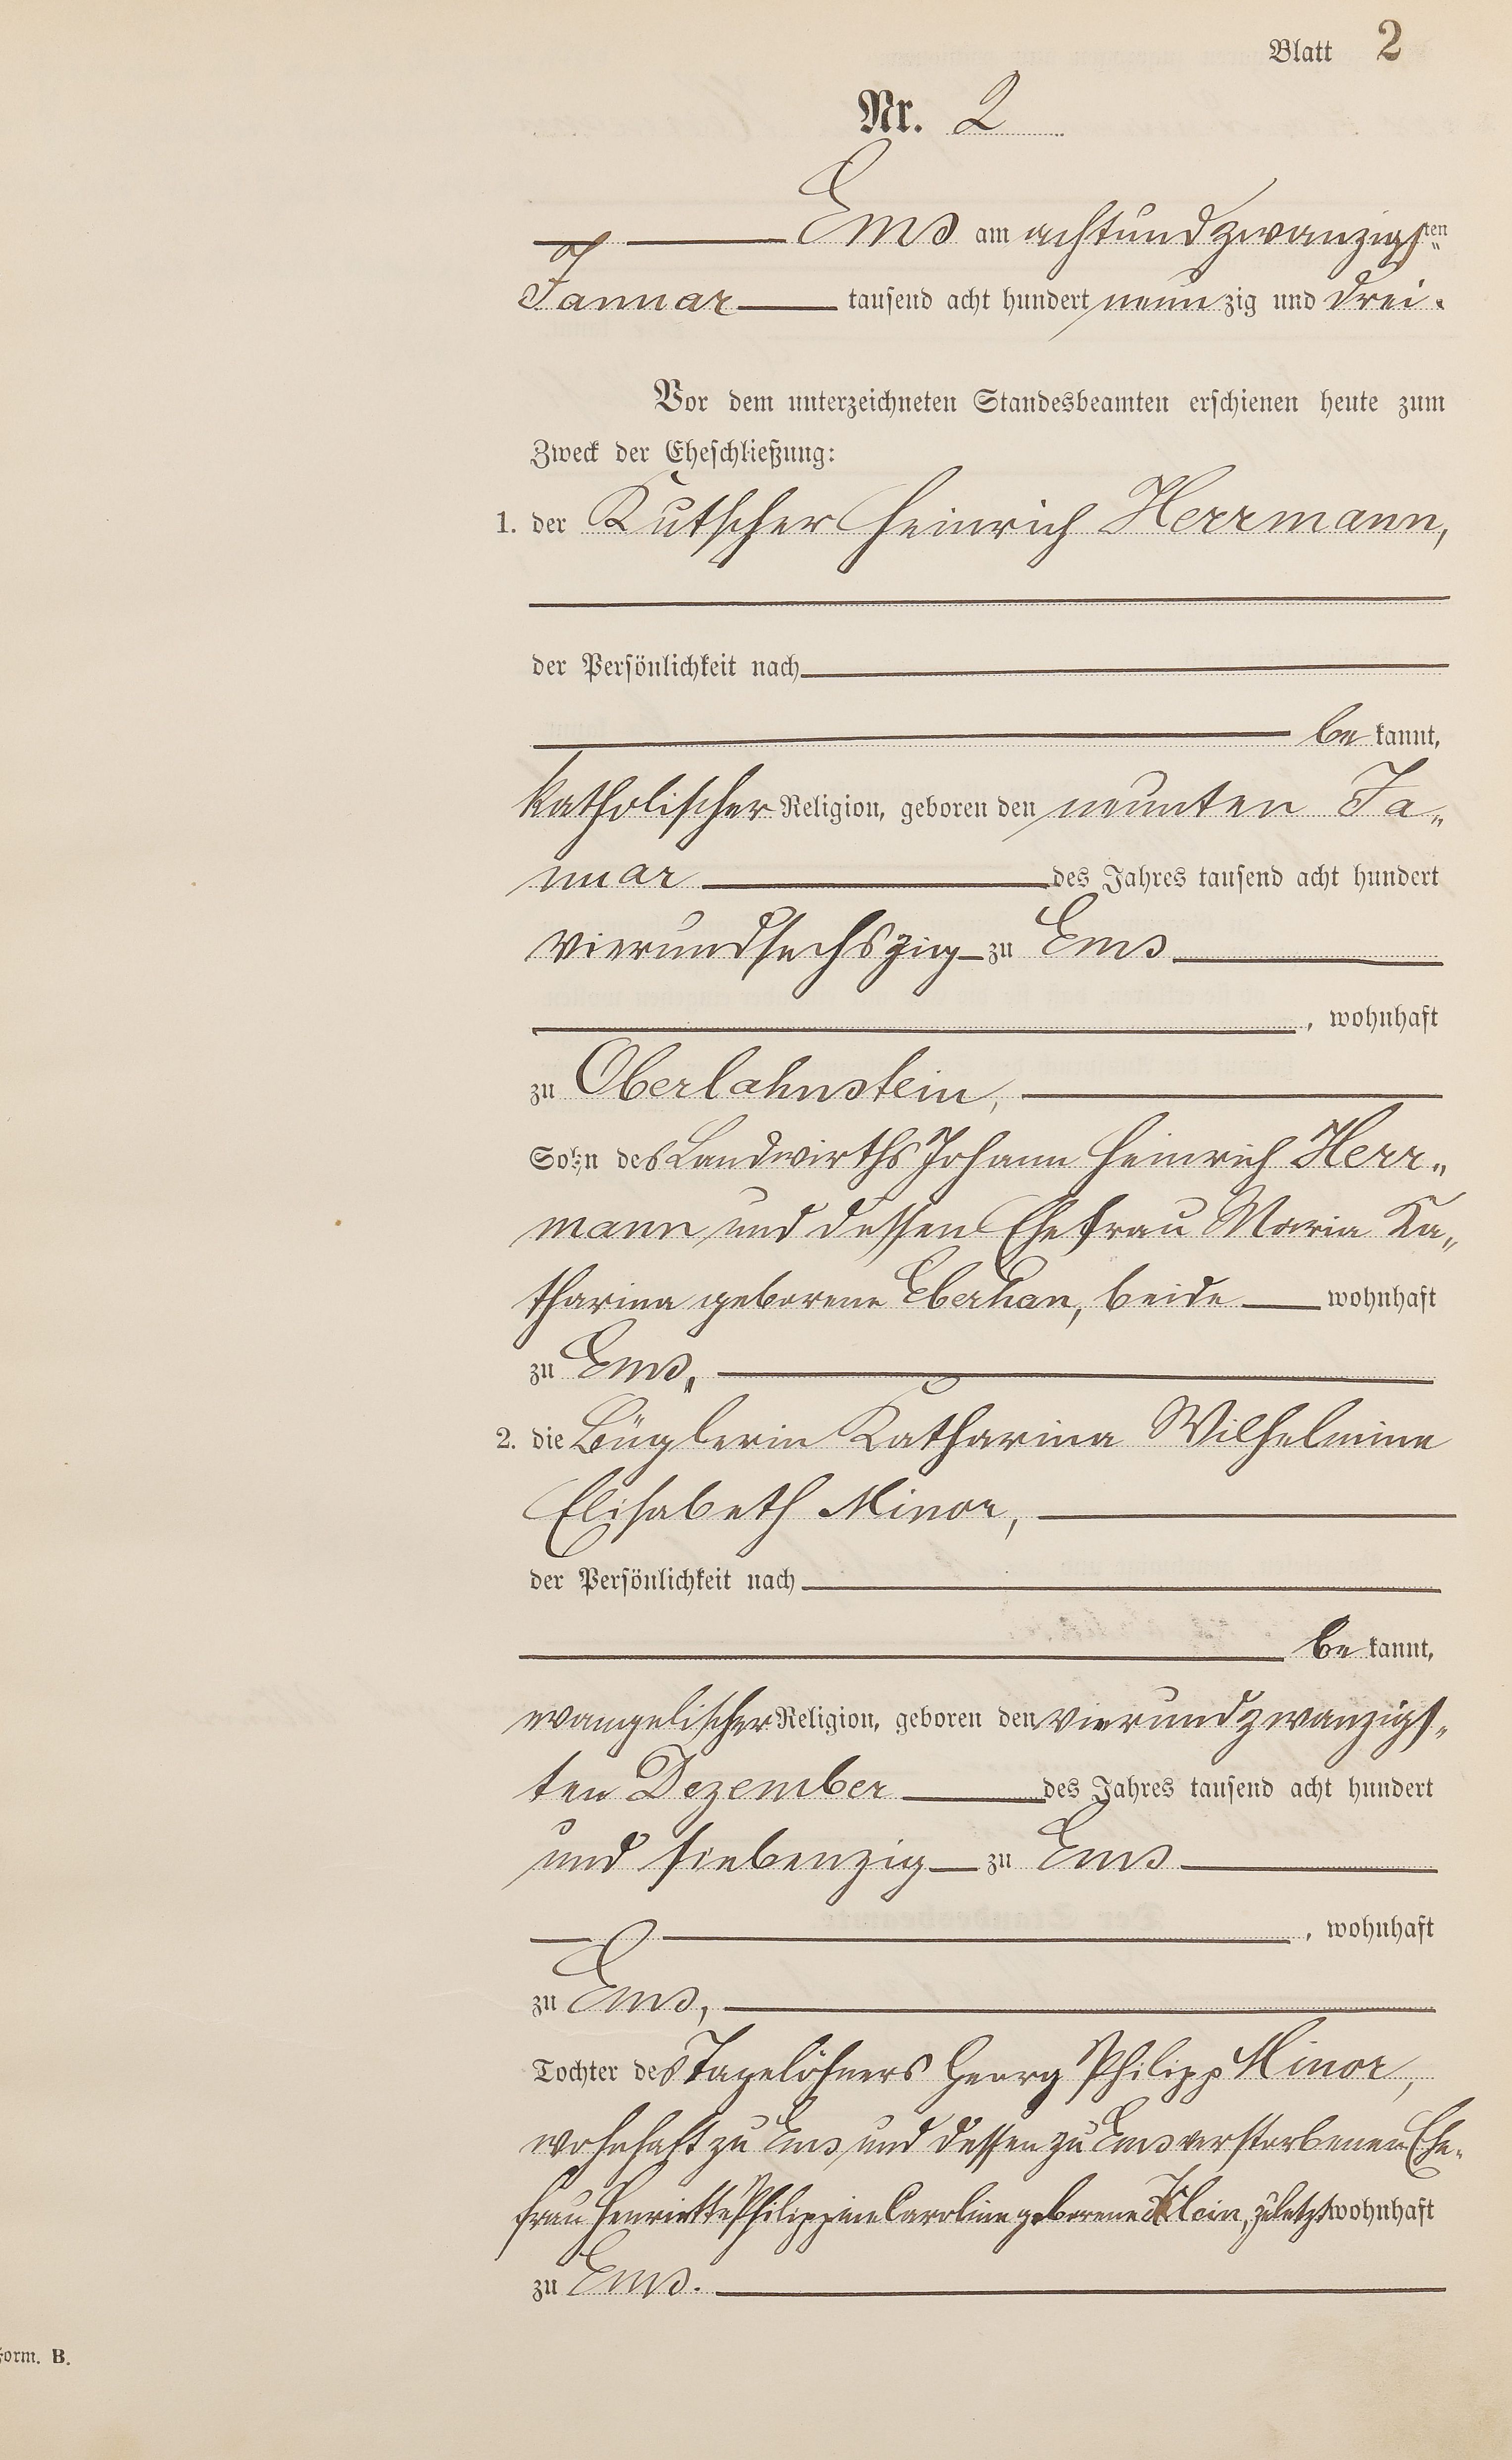 Blatt 2
Nr. 2
Ems am achtundzwanzigsten
Januar tausend acht hundert neunzig und drei.
Vor dem unterzeichneten Standesbeamten erschienen heute zum
Zweck der Eheschließung:
1. der Kutscher Heinrich Herrmann,
der Persönlichkeit nach
bekannt,
katholischer Religion, geboren den neunten Ja„
nuar des Jahres tausend acht hundert
vierundsechszig zu Ems
, wohnhaft
zu Oberlahnstein,
Sohn des Landwirths Johann Heinrich Herr„
mann und dessen Ehefrau Maria Ka„
tharina geborene beide wohnhaft
zu Ems,
2. die Büglerin Katharina Wilhelmine
Elisabeth Minor,
der Persönlichkeit nach
bekannt,
evangelischer Religion, geboren den vierundzwanzigs„
ten Dezember des Jahres tausend acht hundert
und siebenzig zu Ems
, wohnhaft
zu Ems,
Tochter des Tagelöhners Georg Philipp Minor,
wohnhaft zu Ems und dessen zu Ems verstorbenen Ehe„
frau Henriette Philippine Caroline geborene Klein, zuletzt wohnhaft
zu Ems.
Form. B.